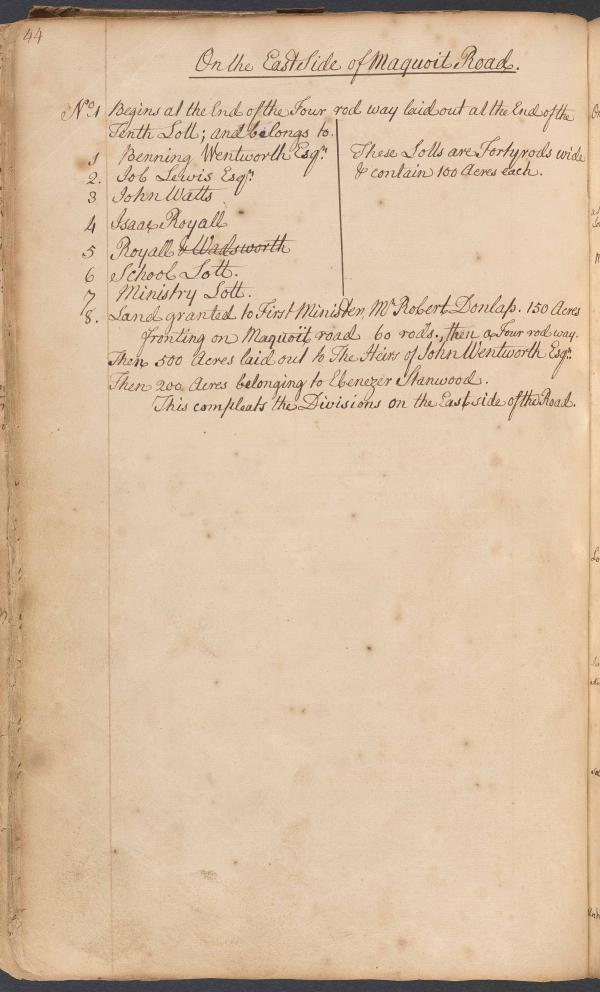 44
On the East Side of Maquoit Road.
No. 1 Begins at the End of the Four rod way laid out at the End of the
Tenth Lott; and belongs to.
1 Benning Wentworth Esqr.
2. Job Lewis Esqr.
3 John Watts
4 Isaac Royall
5 Royall & Wadsworth
6 School Lott.
7 Ministry Lott.
These Lotts are Forty rods wide
& contain 100 Acres each.
8. Land granted to First Minister, Mr Robert Donlap. 150 Acres
Fronting on Maquoit road 60 rods., then a Four rod way.
Then 500 Acres laid out to The Heirs of John Wentworth Esqr.
Then 200 Acres belonging to Ebenezer Stanwood.
This compleats the Divisions on the East side of the Road.